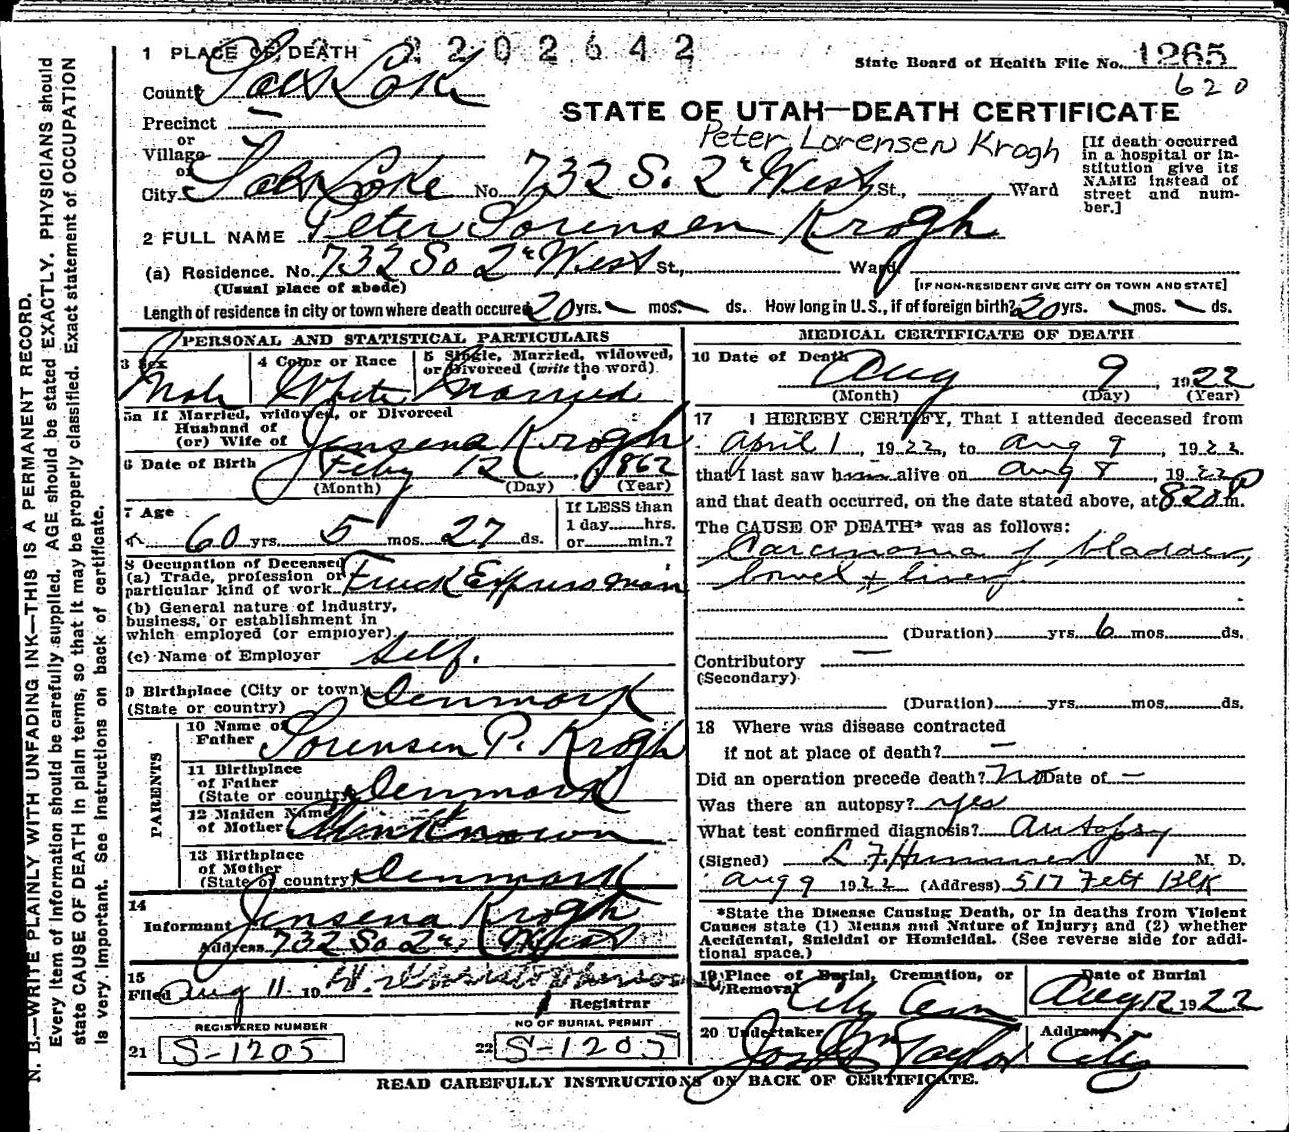 1 PLACE OF DEATH 2202642
State Board of Health File No. 1265
County Salt Lake
620
STATE OF UTAH—DEATH CERTIFICATE
Precinct
or
Village
or
Peter Lorensen Krogh
City Salt Lake No. 732 S. 2d West St., Ward
[If death occurred in a hospital or institution give its NAME instead of street and number.]
2 FULL NAME Peter Sorensen Krogh
(a) Residence. No. 732 So 2d West St., Ward
(Usual place of abode)
[IF NON-RESIDENT GIVE CITY OR TOWN AND STATE]
Length of residence in city or town where death occured 20 yrs. — mos. — ds. How long in U.S., if of foreign birth? 30 yrs. — mos. — ds.
PERSONAL AND STATISTICAL PARTICULARS
3 Sex
Male
4 Color or Race
White
5 Single, Married, widowed, or Divorced (write the word)
Married
5a If Married, widowed, or Divorced
Husband of
(or) Wife of Jensena Krogh
6 Date of Birth Feby 12 1862
(Month) (Day) (Year)
7 Age
60 yrs. 5 mos. 27 ds.
If LESS than
1 day......hrs.
or......min.?
8 Occupation of Deceased
(a) Trade, profession or
particular kind of work Truck Express man
(b) General nature of Industry,
business, or establishment in
which employed (or employer)
(c) Name of Employer Self.
9 Birthplace (City or town)
(State or country) Denmark
PARENTS
10 Name of
Father Sorensen P. Krogh
11 Birthplace
of Father
(State or country) Denmark
12 Maiden Name
of Mother Unknown
13 Birthplace
of Mother
(State or country) Denmark
14
Informant Jensena Krogh
Address 732 So 2d West
15
Filed Aug 11 19
Registrar
REGISTERED NUMBER
21 S-1205
NO OF BURIAL PERMIT
22 S-1205
MEDICAL CERTIFICATE OF DEATH
16 Date of Death Aug 9, 1922
(Month) (Day) (Year)
17 I HEREBY CERTIFY, That I attended deceased from
April 1, 1922, to Aug 9, 1922
that I last saw him alive on Aug 8, 1922
and that death occurred, on the date stated above, at 820 P m.
The CAUSE OF DEATH* was as follows:
Carcinoma of bladder,
bowel + liver.
(Duration) yrs. 6 mos. ds.
Contributory —
(Secondary)
(Duration) yrs. mos. ds.
18 Where was disease contracted
if not at place of death? —
Did an operation precede death? No Date of —
Was there an autopsy? yes
What test confirmed diagnosis? Autopsy
(Signed) L. F. Hummer M. D.
Aug 9 1922 (Address) 517 Felt Blk
*State the Disease Causing Death, or in deaths from Violent
Causes state (1) Means and Nature of Injury; and (2) whether
Accidental, Suicidal or Homicidal. (See reverse side for addi-
tional space.)
19 Place of Burial, Cremation, or
Removal City Cem
Date of Burial
Aug 12 1922
20 Undertaker Jos Wm Taylor
Address City
READ CAREFULLY INSTRUCTIONS ON BACK OF CERTIFICATE.
N. B.—WRITE PLAINLY WITH UNFADING INK—THIS IS A PERMANENT RECORD.
Every item of information should be carefully supplied. AGE should be stated EXACTLY. PHYSICIANS should
state CAUSE OF DEATH in plain terms, so that it may be properly classified. Exact statement of OCCUPATION
is very important. See instructions on back of certificate.